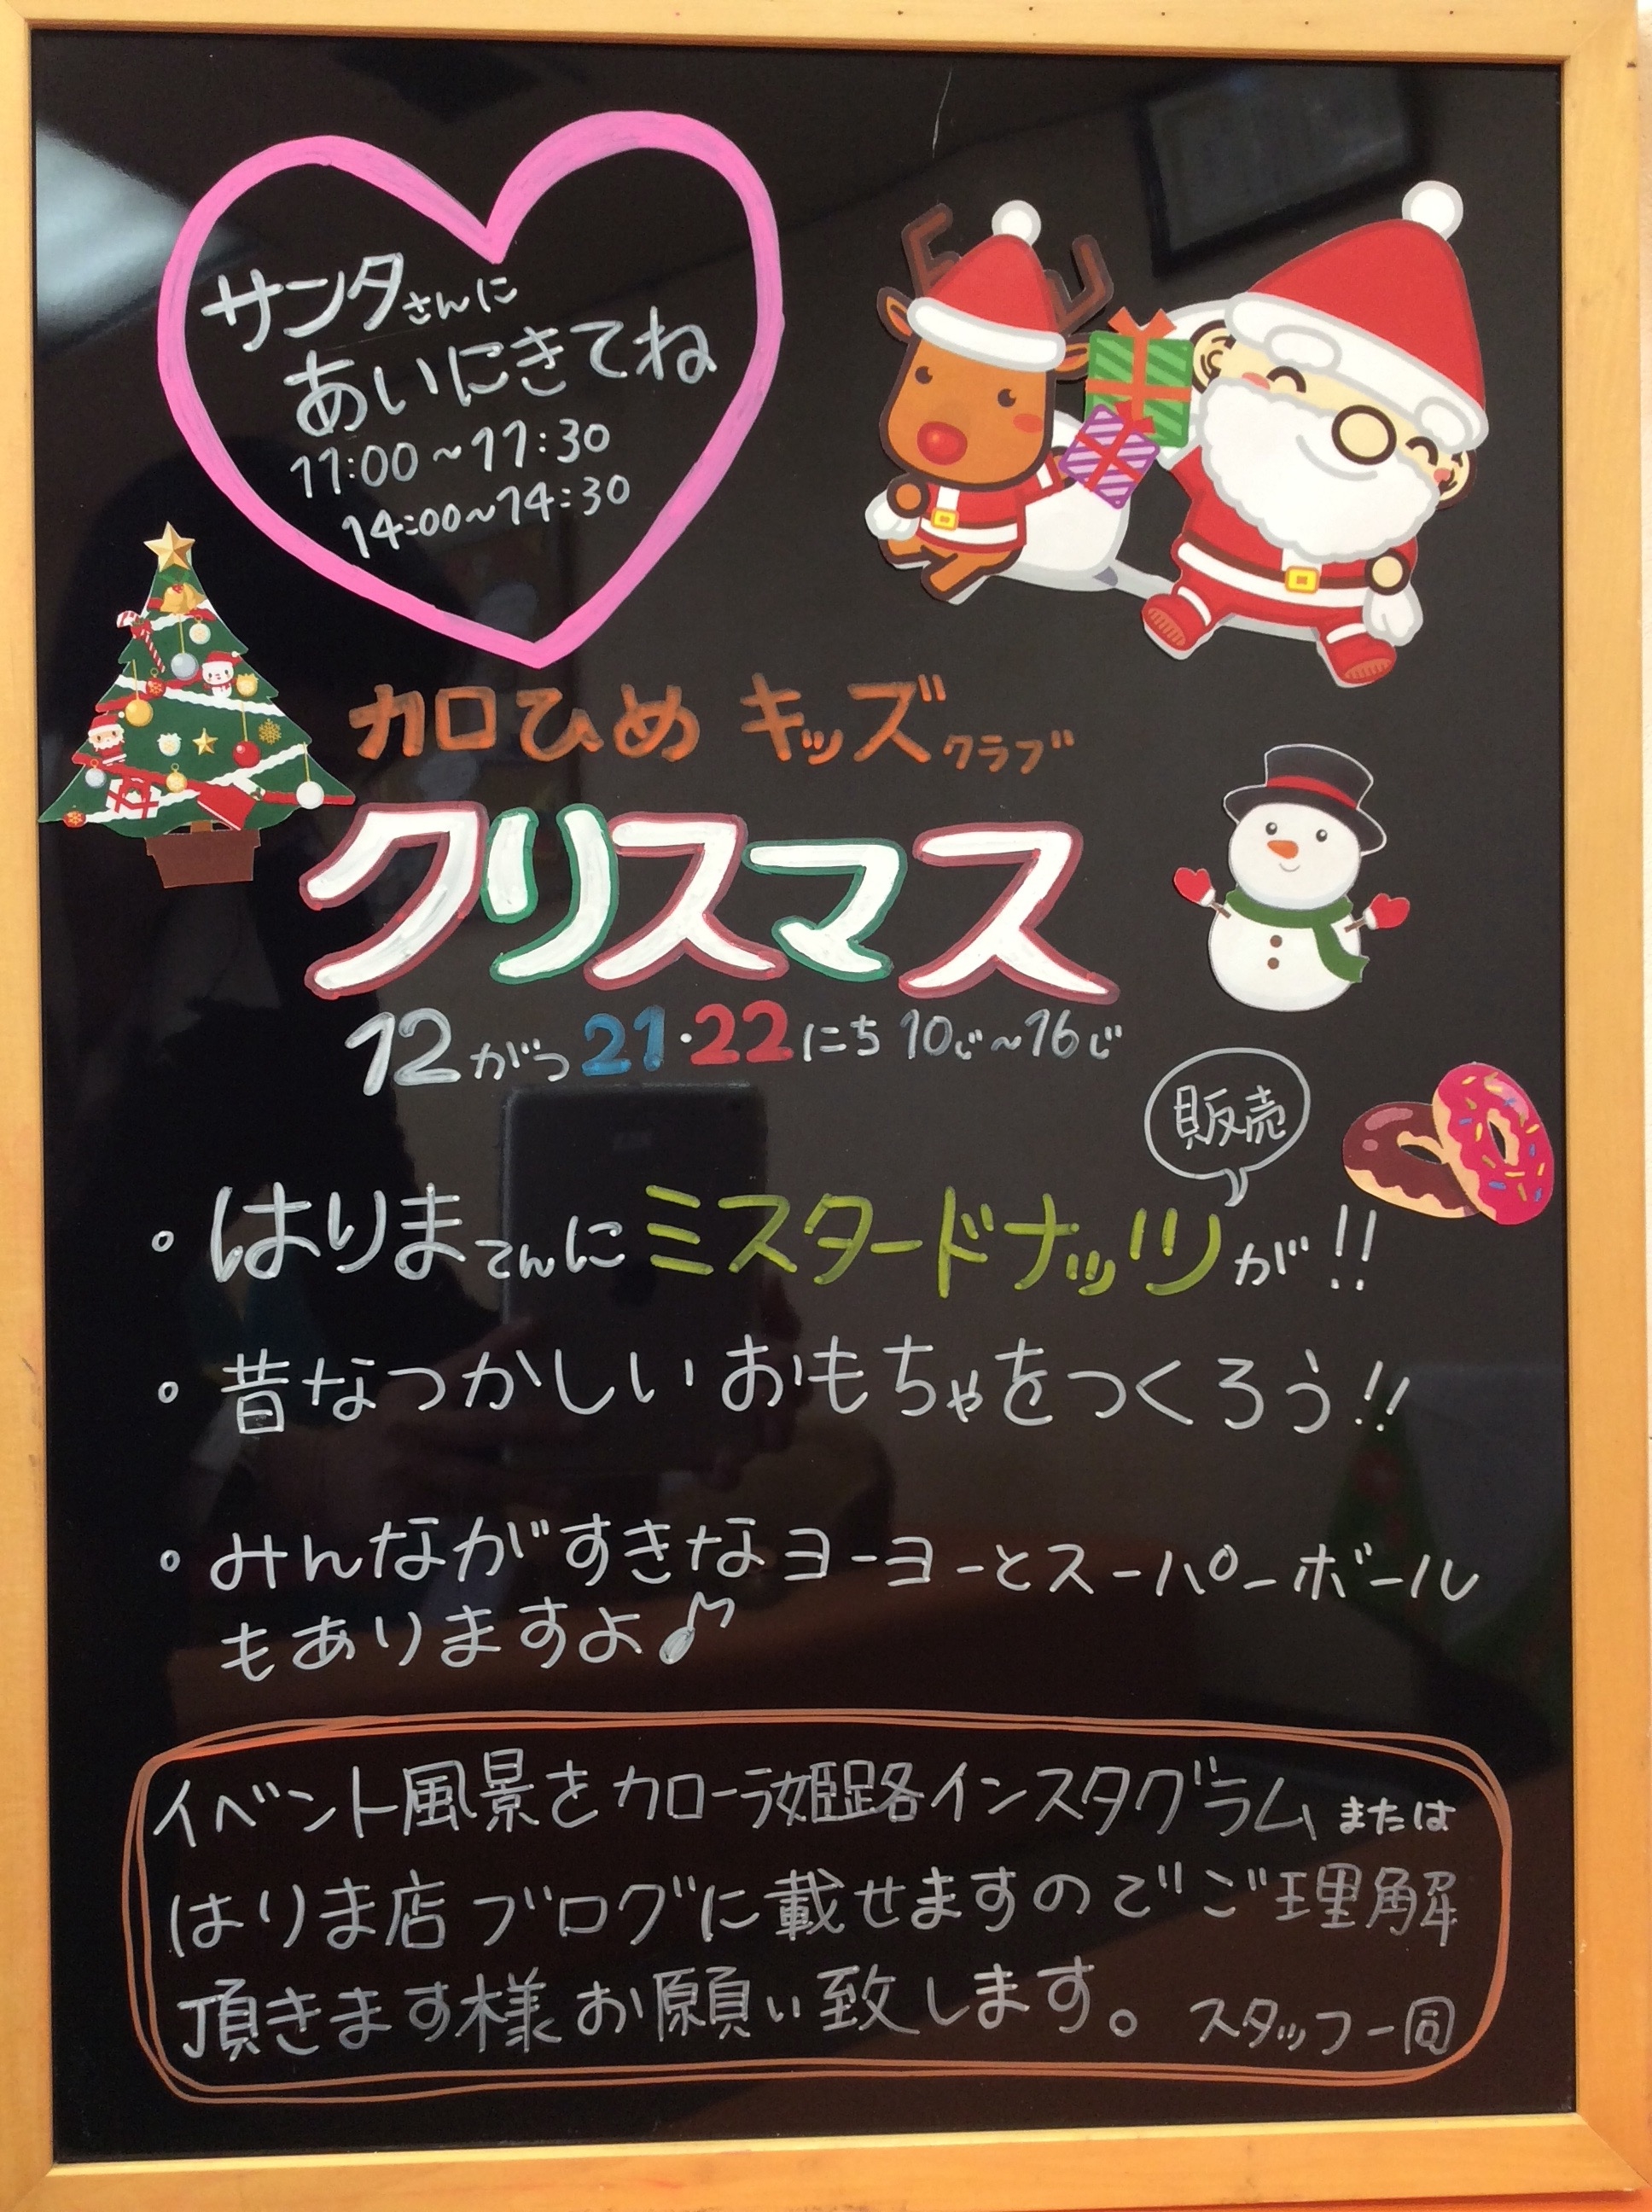 サンタさんに
あいにきてね
11:00〜11:30
14:00〜14:30
カロひめ キッズクラブ
クリスマス
12がつ21・22にち 10じ〜16じ
販売
・はりまてんにミスタードナッツが!!
・昔なつかしいおもちゃをつくろう!!
・みんながすきなヨーヨーとスーパーボール
もありますよ♪
イベント風景をカローラ姫路インスタグラムまたは
はりま店ブログに載せますのでご理解
頂きます様お願い致します。スタッフ一同